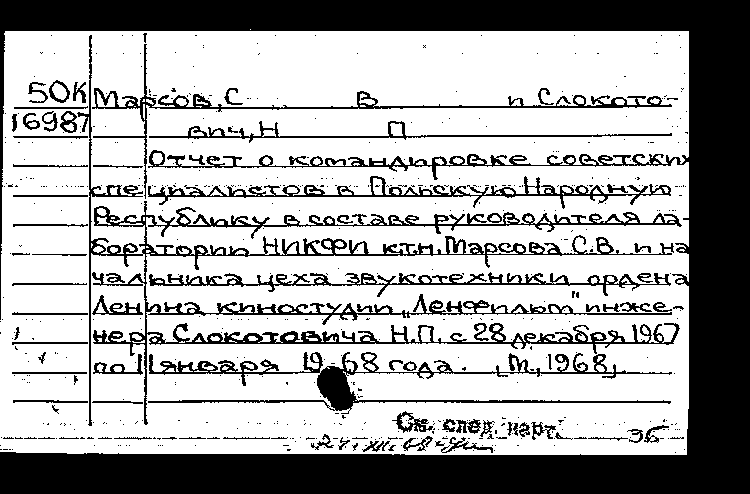 50К Марсов, С В и Слокото-
16987 вич, Н П
Отчет о командировке советских
специалистов в Польскую Народную
Республику в составе руководителя ла-
боратории НИКФИ к.т.н. Марсова С.В. и на
чальника цеха звукотехники ордена
Ленина киностудии „Ленфильм" инже-
нера Слокотовича Н.П. с 28 декабря 1967
по 11 января 1968 года. М., 1968,
См. след. карт. 36